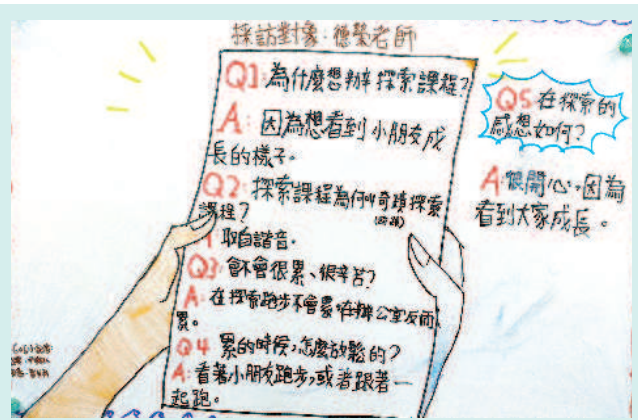 採訪對象:德瑩老師
Q1:為什麼想辦探索課程?
A: 因為想看到小朋友成
長的樣子。
Q2:探索課程為何叫奇蹟探索
課程?
A 取自諧音.
Q3:會不會很累、很辛苦?
A: 在探索跑步不會累,在辦公室反而
累。
Q4 累的時候,怎麼放鬆的?
A:看著小朋友跑步,或者跟著一
起跑。
Q5:在探索的
感想如何?
A:很開心,因為
看到大家成長。